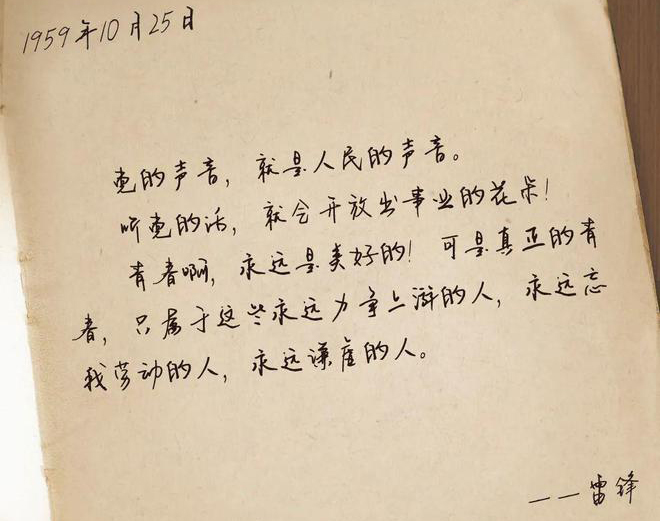 1959年10月25日
党的声音，就是人民的声音。
听党的话，就会开放出事业的花朵！
青春啊，永远是美好的！可是真正的青
春，只属于这些永远力争上游的人，永远忘
我劳动的人，永远谦虚的人。
——雷锋